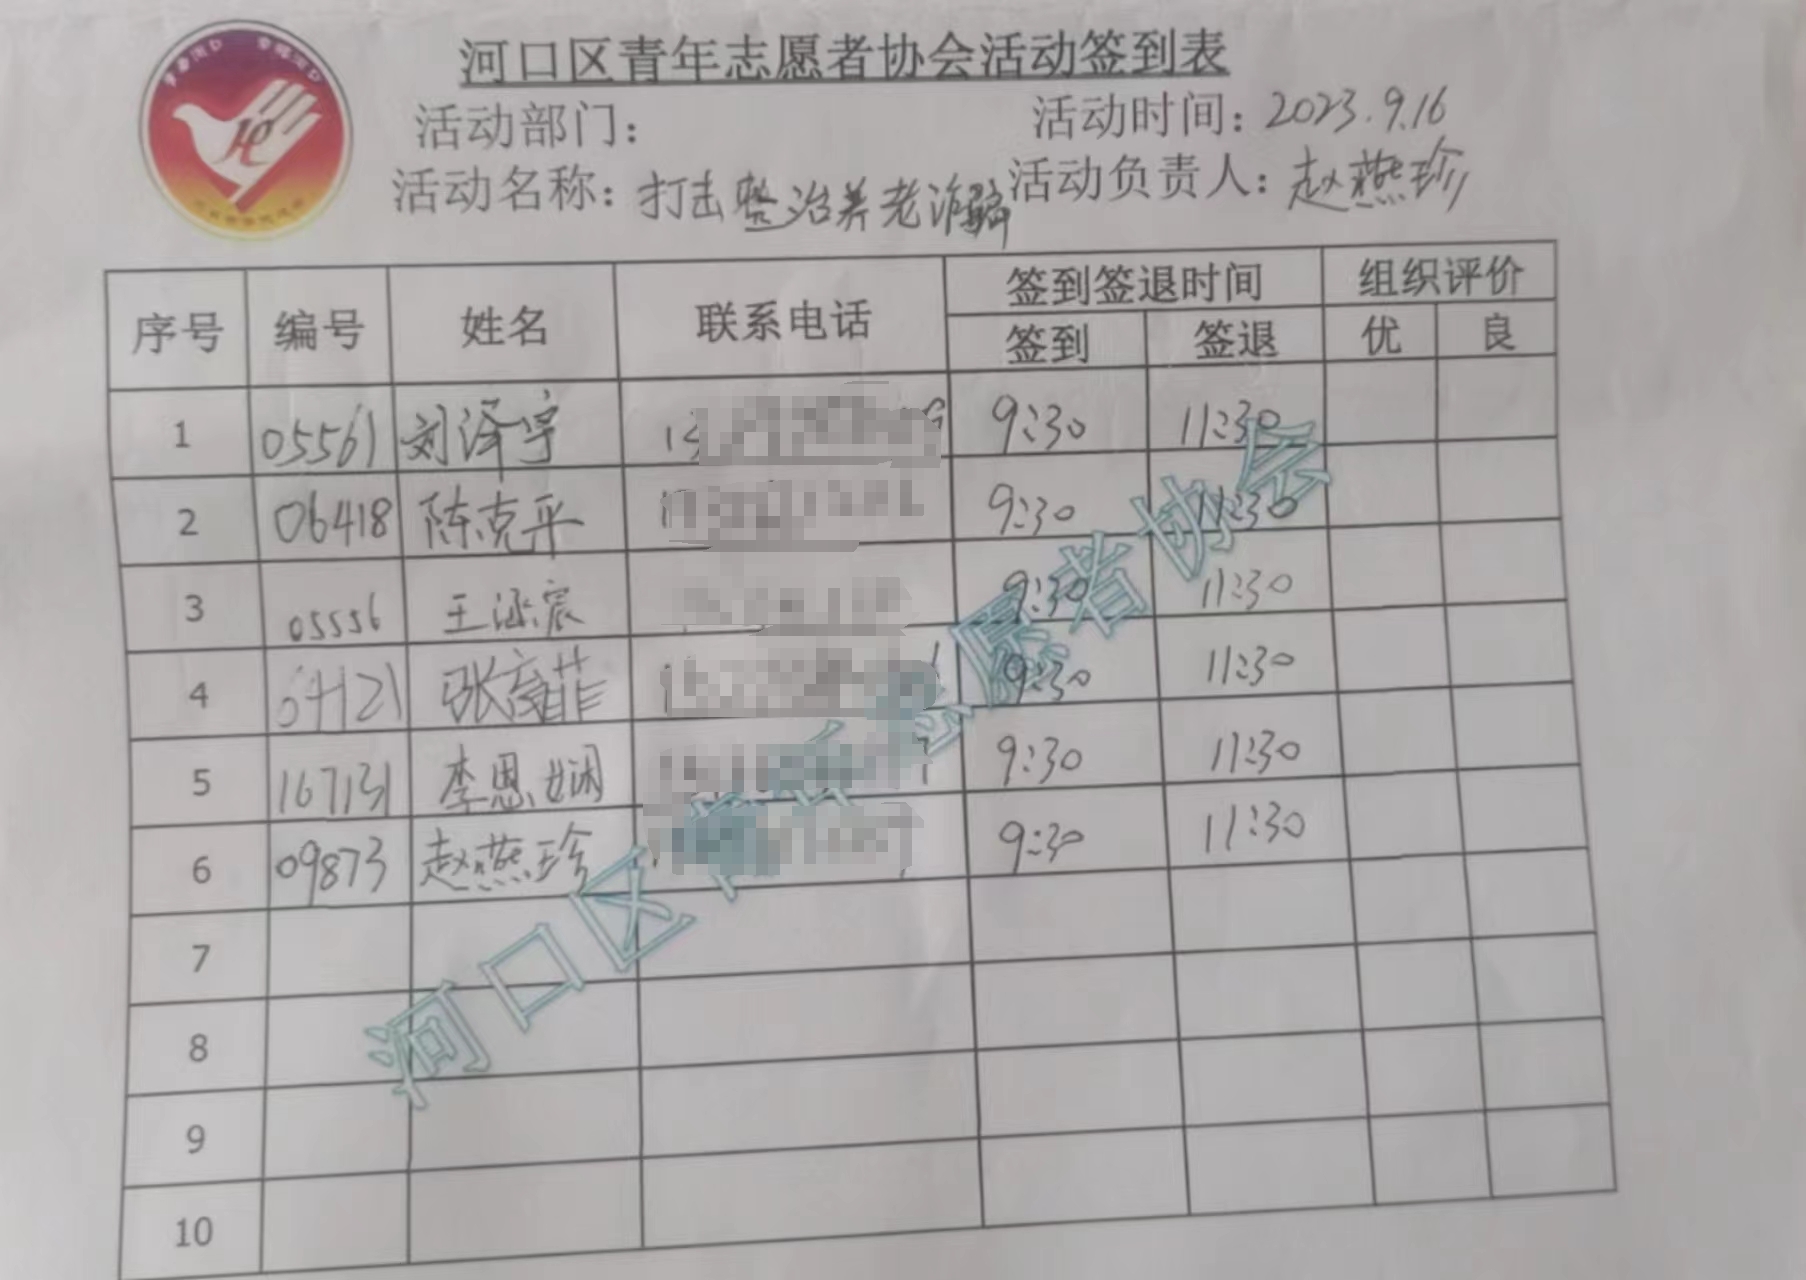 河口区青年志愿者协会活动签到表
活动部门： 活动时间：2023.9.16
活动名称：打击整治养老诈骗 活动负责人：赵燕珍
序号 编号 姓名 联系电话 签到签退时间 组织评价
签到 签退 优 良
1 05561 刘泽宇 9:30 11:30
2 06418 陈克平 9:30 11:30
3 05556 王涵宸 9:30 11:30
4 04121 张育菲 9:30 11:30
5 167131 李恩娴 9:30 11:30
6 09873 赵燕珍 9:30 11:30
7
8
9
10
河口区青年志愿者协会